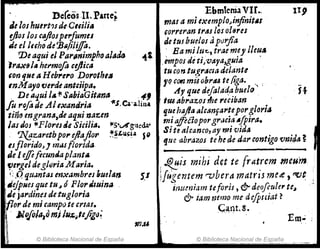 Desseos II. Parte;
de los huertos de Cecilia
ejios los casios perfumes
de el lecho de Basilissa.
De aqui el Paranimpho alado 45
traxe la hermosa cestica
con que a Hebrero Dorothea
en Mayo verde anteüipa.
De aqui la * Sabia Gitana 49
su rosa de Alexandria *S.Catalina
tiño en grana, de aqui nazen
las dos * Flores de Sicilia.
Nazareth por esta flor *S.Lucia 50
es florido, y mas florida
de tesse fecunda planta
vergel de gloria Maria.
O quantas enxambres huelan 55
despues que tu, ò Flor diuina
de jardines de tu gloria
flor de mi campo te crias.
Nosola, ò mi luz, te sigo:
mas
Eblema VII. 119
mas a mi exemplo, infinitas
correran tras los olores
de tus huelos à porfia
Ea mi luz, trae me y lleua
empos de ti, vaya, guia
tu con tu gracia delante
yo con mi obra te siga.
Ay que desalada huelo 55
tus abrazos he reciban
que hasta alcançarte por gloria
mi affecto por gracia aspira.
Si te alcanço, ay mi vida
que abrazos tehe de dar contigo vnida?
Quis mihi det te fratrem meum
sugentem vbera matris meæ, vt
inueniam te foris, & deosculer te,
& iam nemo me despiciat?
Cant. 8.
Em-
© Biblioteca Nacional de España
© Biblioteca Nacional de España